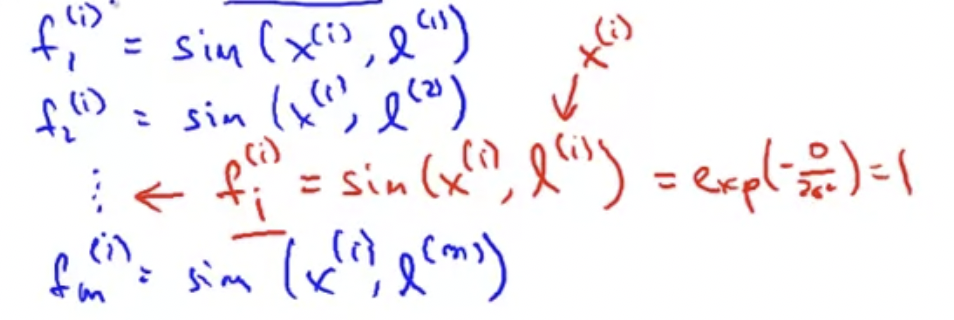 f₁⁽ⁱ⁾ = sim(x⁽ⁱ⁾, l⁽¹⁾)
x⁽ⁱ⁾
f₂⁽ⁱ⁾ = sim(x⁽ⁱ⁾, l⁽²⁾)
⋮ ← fᵢ⁽ⁱ⁾ = sim(x⁽ⁱ⁾, l⁽ⁱ⁾) = exp(-0/2σ²) = 1
fₘ⁽ⁱ⁾ = sim(x⁽ⁱ⁾, l⁽ᵐ⁾)